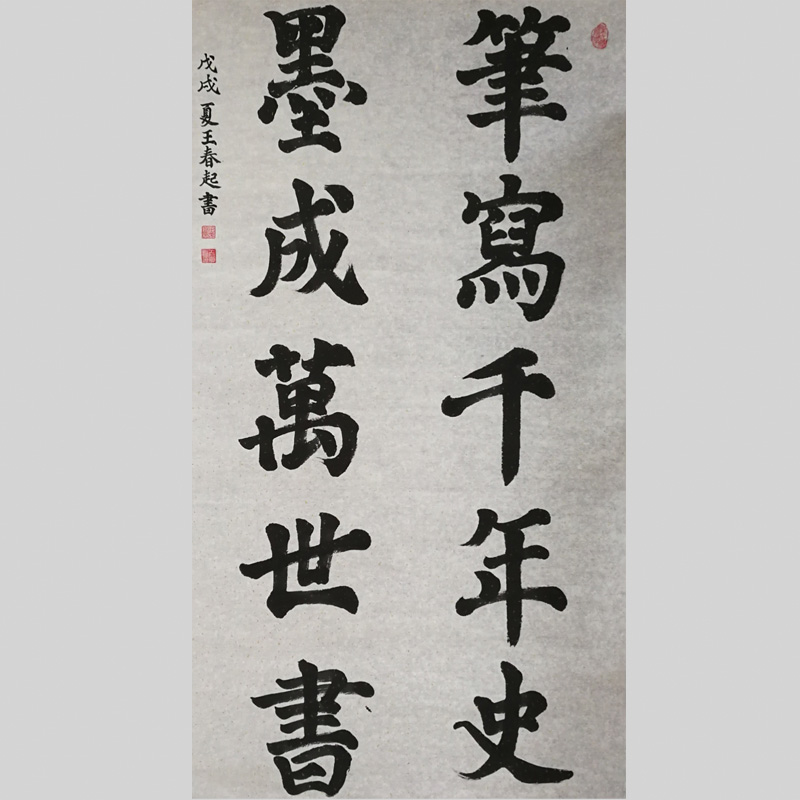 筆寫千年史
墨成萬世書
戊戌夏王春起書